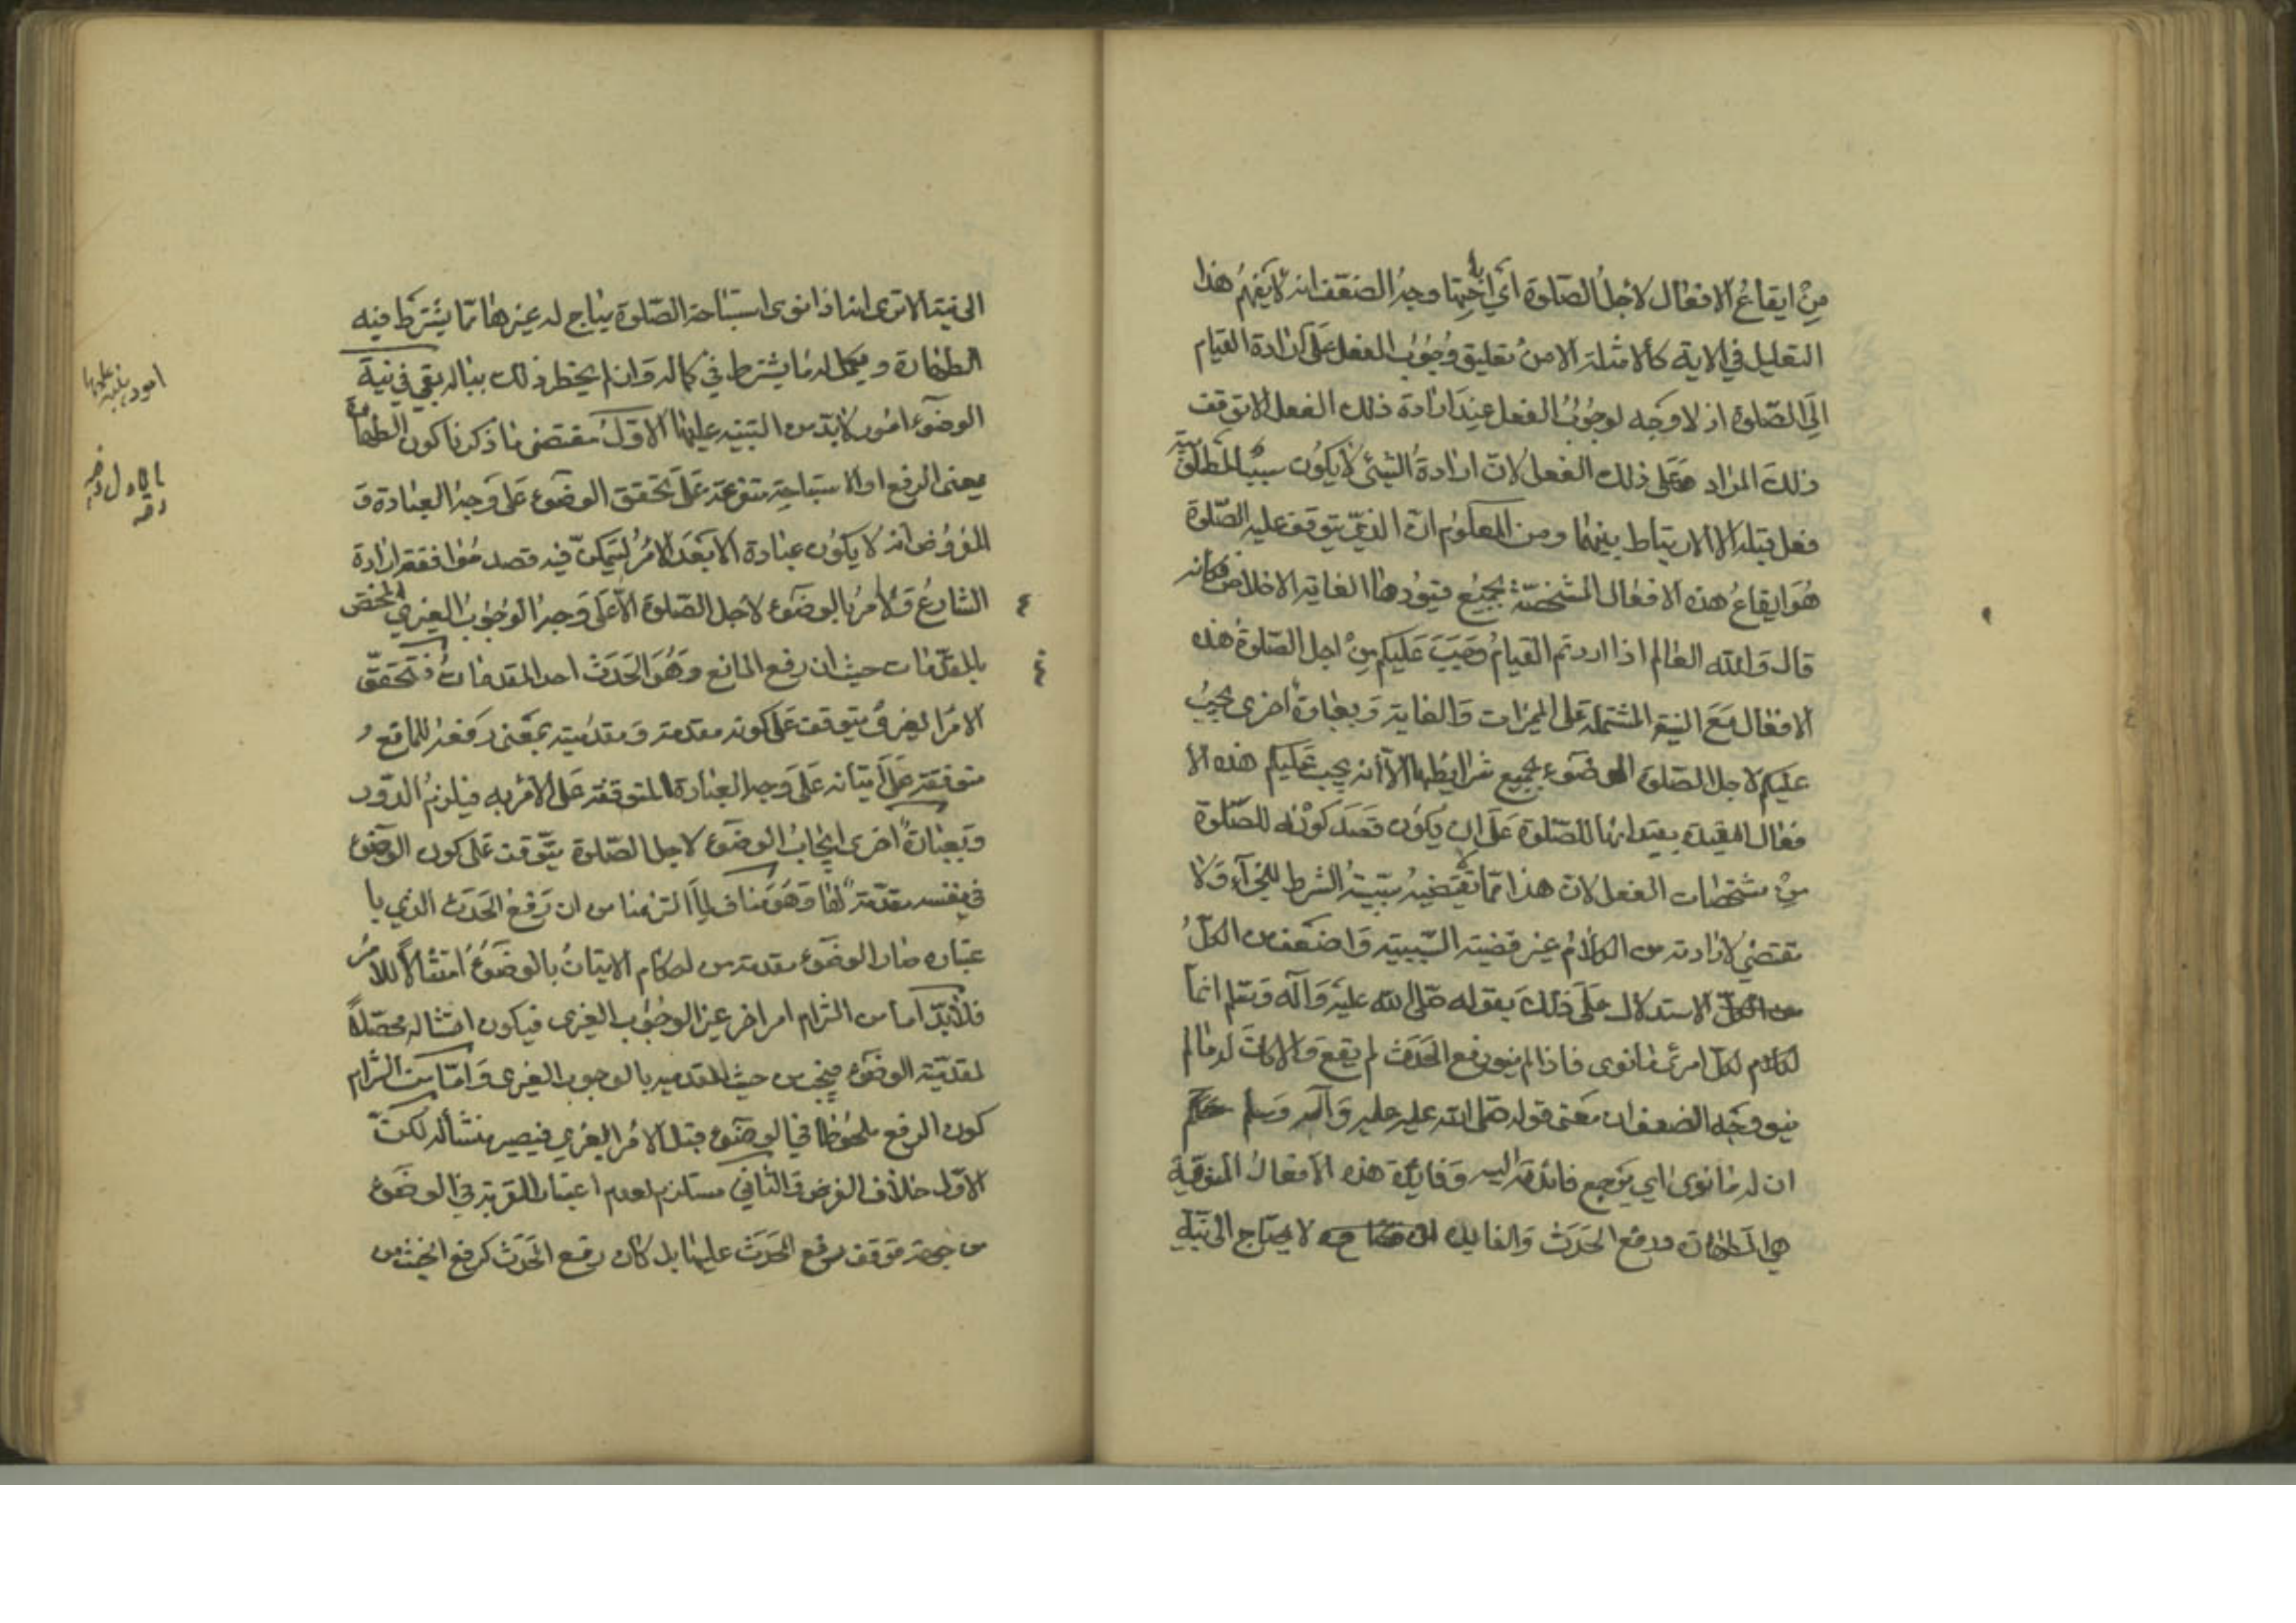 من ايقاع الافعال لاجل الصلوة اي لاباحتها وجه الضعف انه لا يفهم هذا
التعليل في الاية كالامثلة الا من تعليق وجوب الفعل على ارادة القيام
الى الصلوة اذ لا وجه لوجوب الفعل عند ارادة ذلك الفعل الا توقف
ذلك المراد على ذلك الفعل لان ارادة الشئ لا يكون سببا لمطلوبية
فعل قبله الا لارتباط بينهما ومن المعلوم ان الذي يتوقف عليه الصلوة
هو ايقاع هذه الافعال المشخصة بجميع قيودها الغاية الاخلاص فكانه
قال والله العالم اذا اردتم القيام وجب عليكم من اجل الصلوة هذه
الافعال مع النية المشتملة على المميزات والغاية وبعبارة اخرى يجب
عليكم لاجل الصلوة الوضوء بجميع شرايطها لا انه يجب عليكم هذه الا
فعال المقيدة بقيد انها للصلوة على ان يكون قصد كونه للصلوة
من مشخصات الفعل لان هذا مما لا تقتضيه سببية الشرط للجزآء ولا
مقتضي لارادته من الكلام غير قضية السببية واضعف من الكل
الاستدلال على ذلك بقوله صلى الله عليه وآله وسلم انما
لكل امرئ ما نوى فاذا لم ينو رفع الحدث لم يقع والا كان له ما لم
ينو ووجه الضعف ان معنى قوله صلى الله عليه عليه وآله وسلم
ان له ما نوى اي يرجع فائدته اليه وفايدة هذه الافعال المنوية
هي الطهارة ورفع الحدث والفايدة لا يحتاج الى نية
الى نية الا ترى انه اذا نوى استباحة الصلوة يباح له غيرها مما يشترط فيه
الطهارة ويكمل له ما يشترط في كماله وان لم يخطر ذلك بباله بقي في نية
الوضوء امور لا بد من التنبيه عليها الاول مقتضى ما ذكرنا كون الطهارة
بمعنى الرفع او الاستباحة متفرعة على تحقق الوضوء على وجه العبادة و
المفروض انه لا يكون عبادة الا بعد الامر ليتمكن فيه قصد موافقة ارادة
الشارع ولا امر بالوضوء لاجل الصلوة الا على وجه الوجوب الغيري المختص
بالمقدمات حيث ان رفع المانع وهو الحدث احد المقدمات فتحقق
الامر الغيري يتوقف على كونه مقدمة ومقدميته بمعنى رفعه للمانع
متوقفة على اتيانه على وجه العبادة المتوقفة على الامر به فيلزم الدور
وبعبارة اخرى ايجاب الوضوء لاجل الصلوة يتوقف على كون الوضوء
في نفسه مقدمة لها وهو مناف لما التزمنا من ان رفع الحدث الذي با
عتباره صار الوضوء مقدمة من احكام الاتيان بالوضوء امتثالا للامر
فلا بد اما من التزام امر اخر غير الوجوب الغيري فيكون امتثاله محصلا
لمقدمية الوضوء فيجب من حيث المقدمية بالوجوب الغيري واما من التزام
كون الرفع ملحوظا في الوضوء قبل الامر الغيري فيصير منشأ له لكن
الاول خلاف الفرض والثاني مستلزم لعدم اعتبار القربة في الوضوء
من جهة توقف رفع الحدث عليها بل كان رفع الحدث كرفع الخبث من